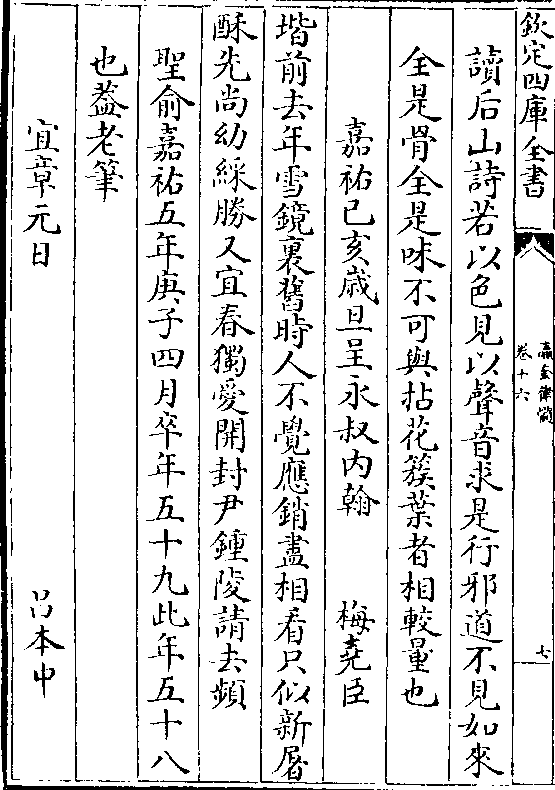 欽定四庫全書
瀛奎律髓
卷十六
七
讀后山詩若以色見以聲音求是行邪道不見如來
全是骨全是味不可與拈花簇葉者相較量也
嘉祐己亥歲旦呈永叔内翰 梅堯臣
堦前去年雪鏡裏舊時人不覺應銷盡相看只似新屠
酥先尚幼綵勝又宜春獨愛開封尹鍾陵請去頻
聖俞嘉祐五年庚子四月卒年五十九此年五十八
也葢老筆
宜章元日 吕本中